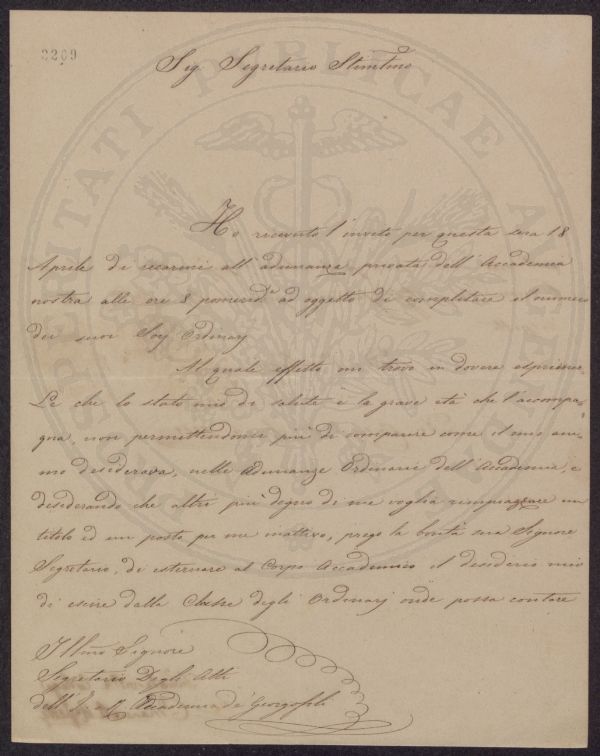 2209
Sig. Segretario Stimtmo
Ho ricevuto l'invito per questa sera 18
Aprile di recarmi all'adunanza privata dell'Accademia
nostra alle ore 8 pomerid.e ad oggetto di completare il numero
dei suoi Socj Ordinarj
Al quale effetto mi trovo in dovere esprimer-
Le che lo stato mio di salute e la grave età che l'accompa-
gna, non permettendomi più di comparire come il mio ani-
mo desiderava, nelle Adunanze Ordinarie dell'Accademia, e
desiderando che altri più degno di me voglia rimpiazzare un
titolo ed un posto per me inattivo, prego la bontà sua Signore
Segretario, di esternare al Corpo Accademico il desiderio mio
di escire dalla Classe degli Ordinarj onde possa contare
Illmo Signore
Segretario Degli Atti
dell'I. e R. Accademia de Georgofili
PROSPERITATI PUBLICAE AUGENDAE